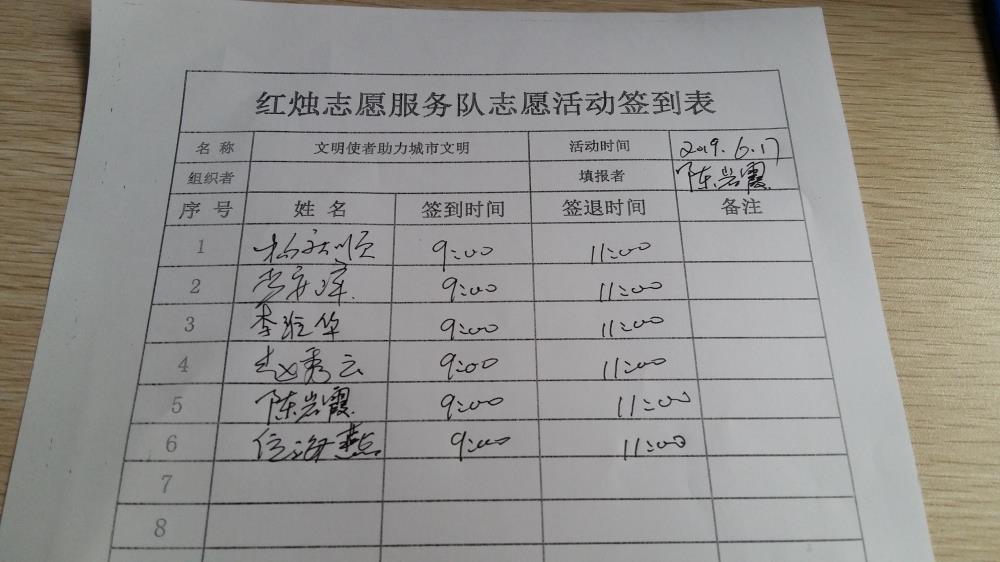 红烛志愿服务队志愿活动签到表
名称 文明使者助力城市文明 活动时间 2019.6.17
组织者 填报者 陈岩霞
序号 姓名 签到时间 签退时间 备注
1 9:00 11:00
2 9:00 11:00
3 李 华 9:00 11:00
4 赵秀云 9:00 11:00
5 陈岩霞 9:00 11:00
6 位海燕 9:00 11:00
7
8